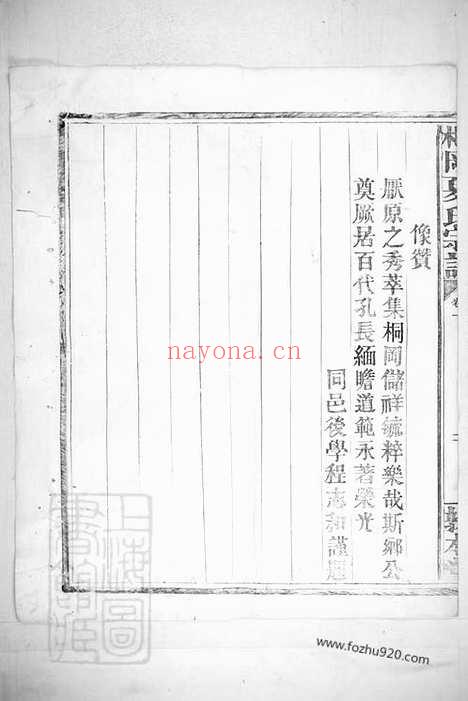 桐岡夏氏宗譜
像贊
厥原之秀萃集桐岡儲祥毓粹樂哉斯鄉公
奠厥居百代孔長緬瞻道範永著榮光
同邑後學程志和謹題
nayona.cn
www.fozhu920.com